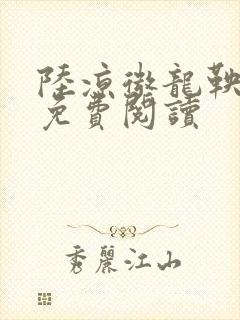 陸凉徽龍鞅
免費閱讀
秀麗江山